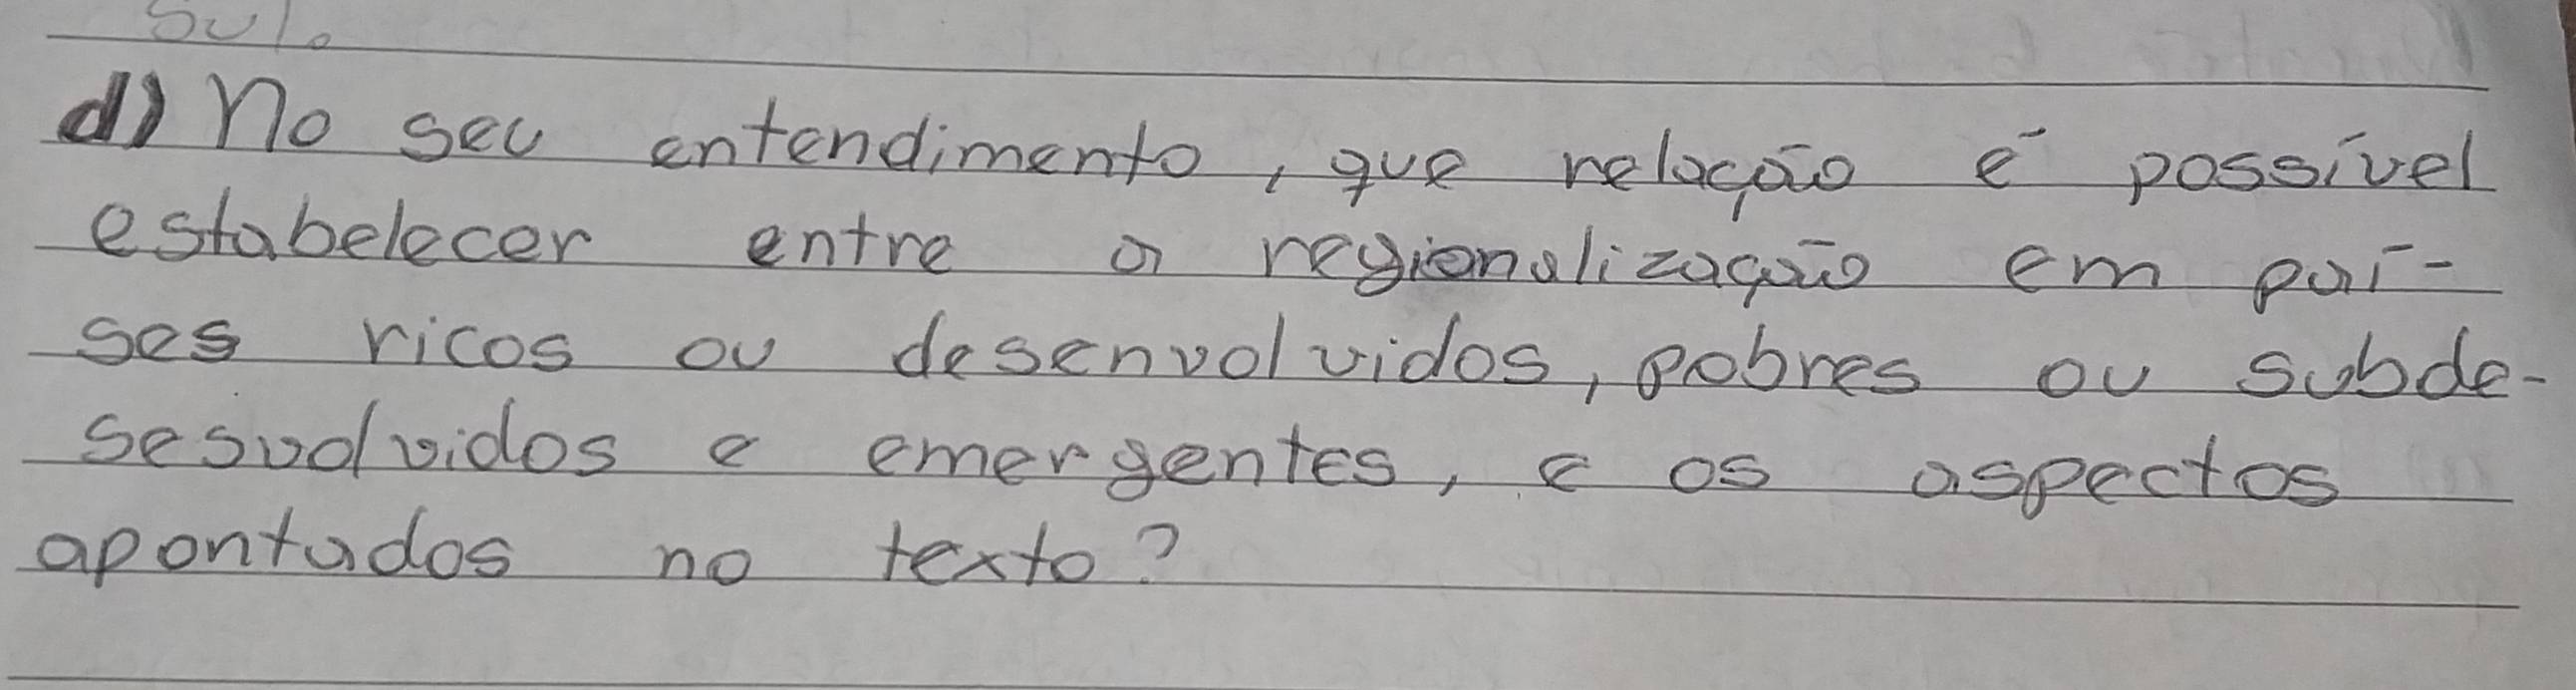 Sul.
d) No seu entendimento, que relação é possível
estabelecer entre a regionalização em paí-
ses ricos ou desenvolvidos, pobres ou subde-
sesvolvidos e emergentes, e os aspectos
apontados no texto?